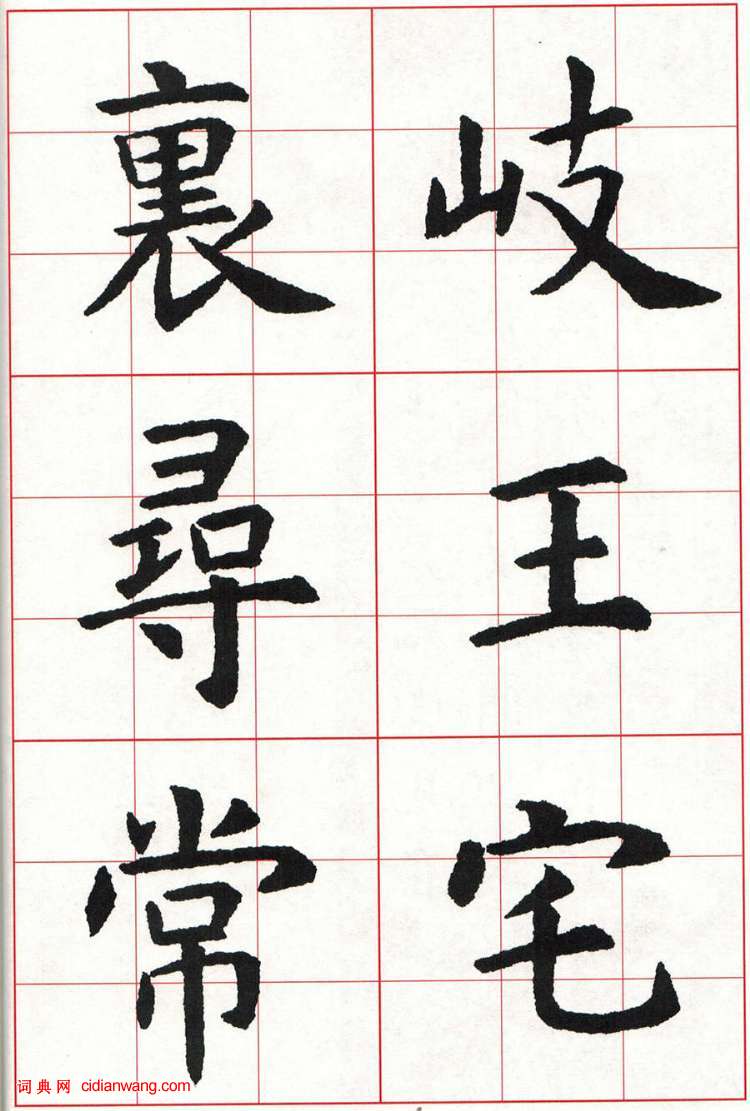 岐王宅
裏尋常
词典网 cidianwang.com